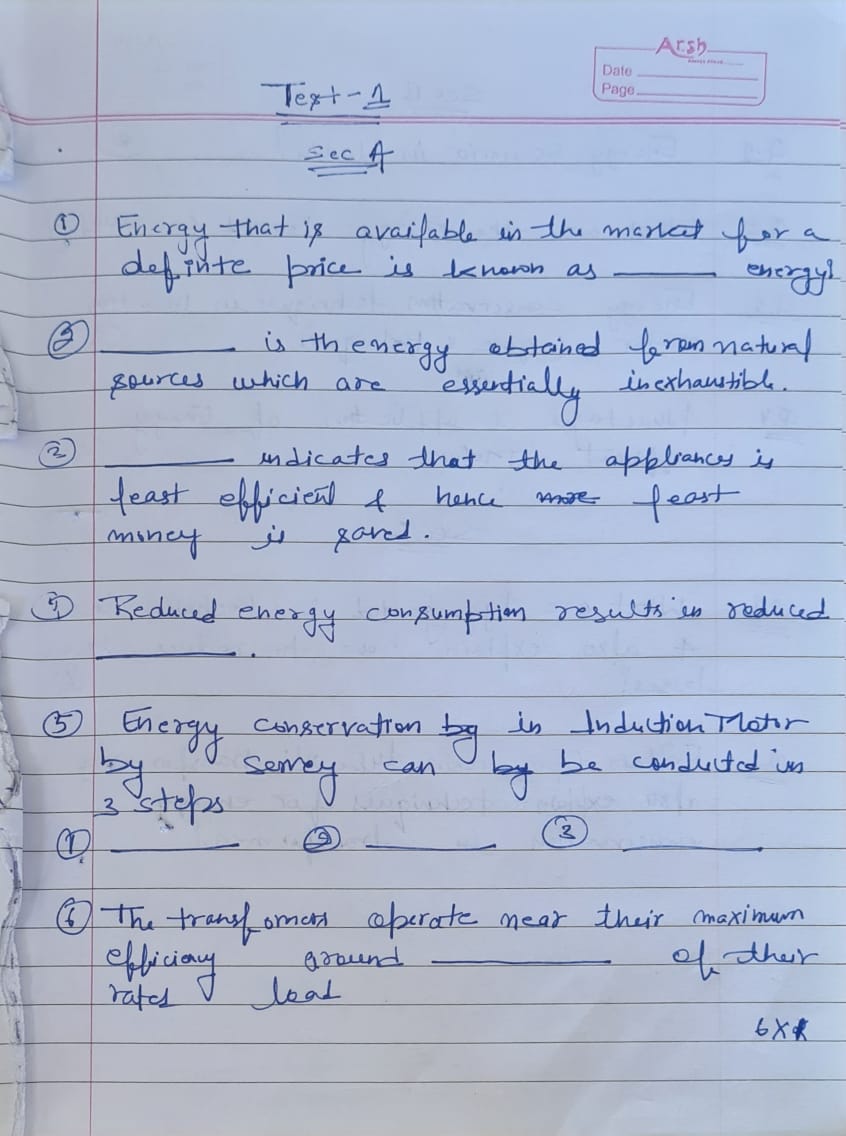 Arsh
Date
Page
Text-1
Sec A
① Energy that is available in the market for a
definte price is known as ______ energy?
③ ______ is th energy obtained from natural
sources which are essentially inexhaustible.
② ______ indicates that the appliances is
least efficient & hence more least
money is saved.
Reduced energy consumption results in reduced
______.
⑤ Energy conservation by in Induction Motor
by can by be conducted in
3 steps
① ______ ② ______ ③ ______
⑥ The transfomers operate near their maximum
efficiency around ______ of their
rates load
6X